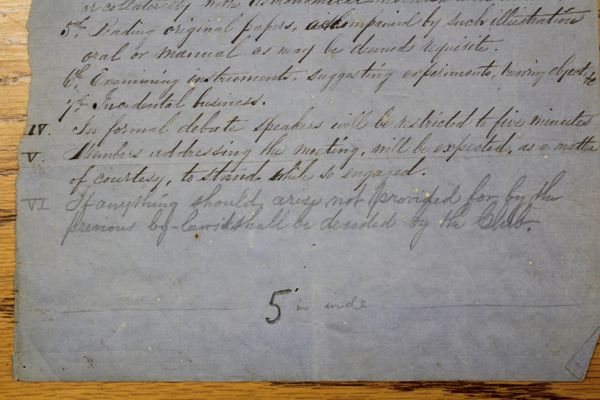 or collaterally with Astronomical
5th. Reading original papers, accompanied by such illustration
oral or manual as may be deemed requisite.
6th. Examining instruments, suggesting experiments, viewing objects &c
7th. Incidental business.
IV. In formal debate speakers will be restricted to five minutes
V. Members addressing the meeting, will be expected, as a matter
of courtesy, to stand while so engaged.
VI If anything should arise not provided for by the
previous by-laws it shall be decided by the Club.
5 in wide